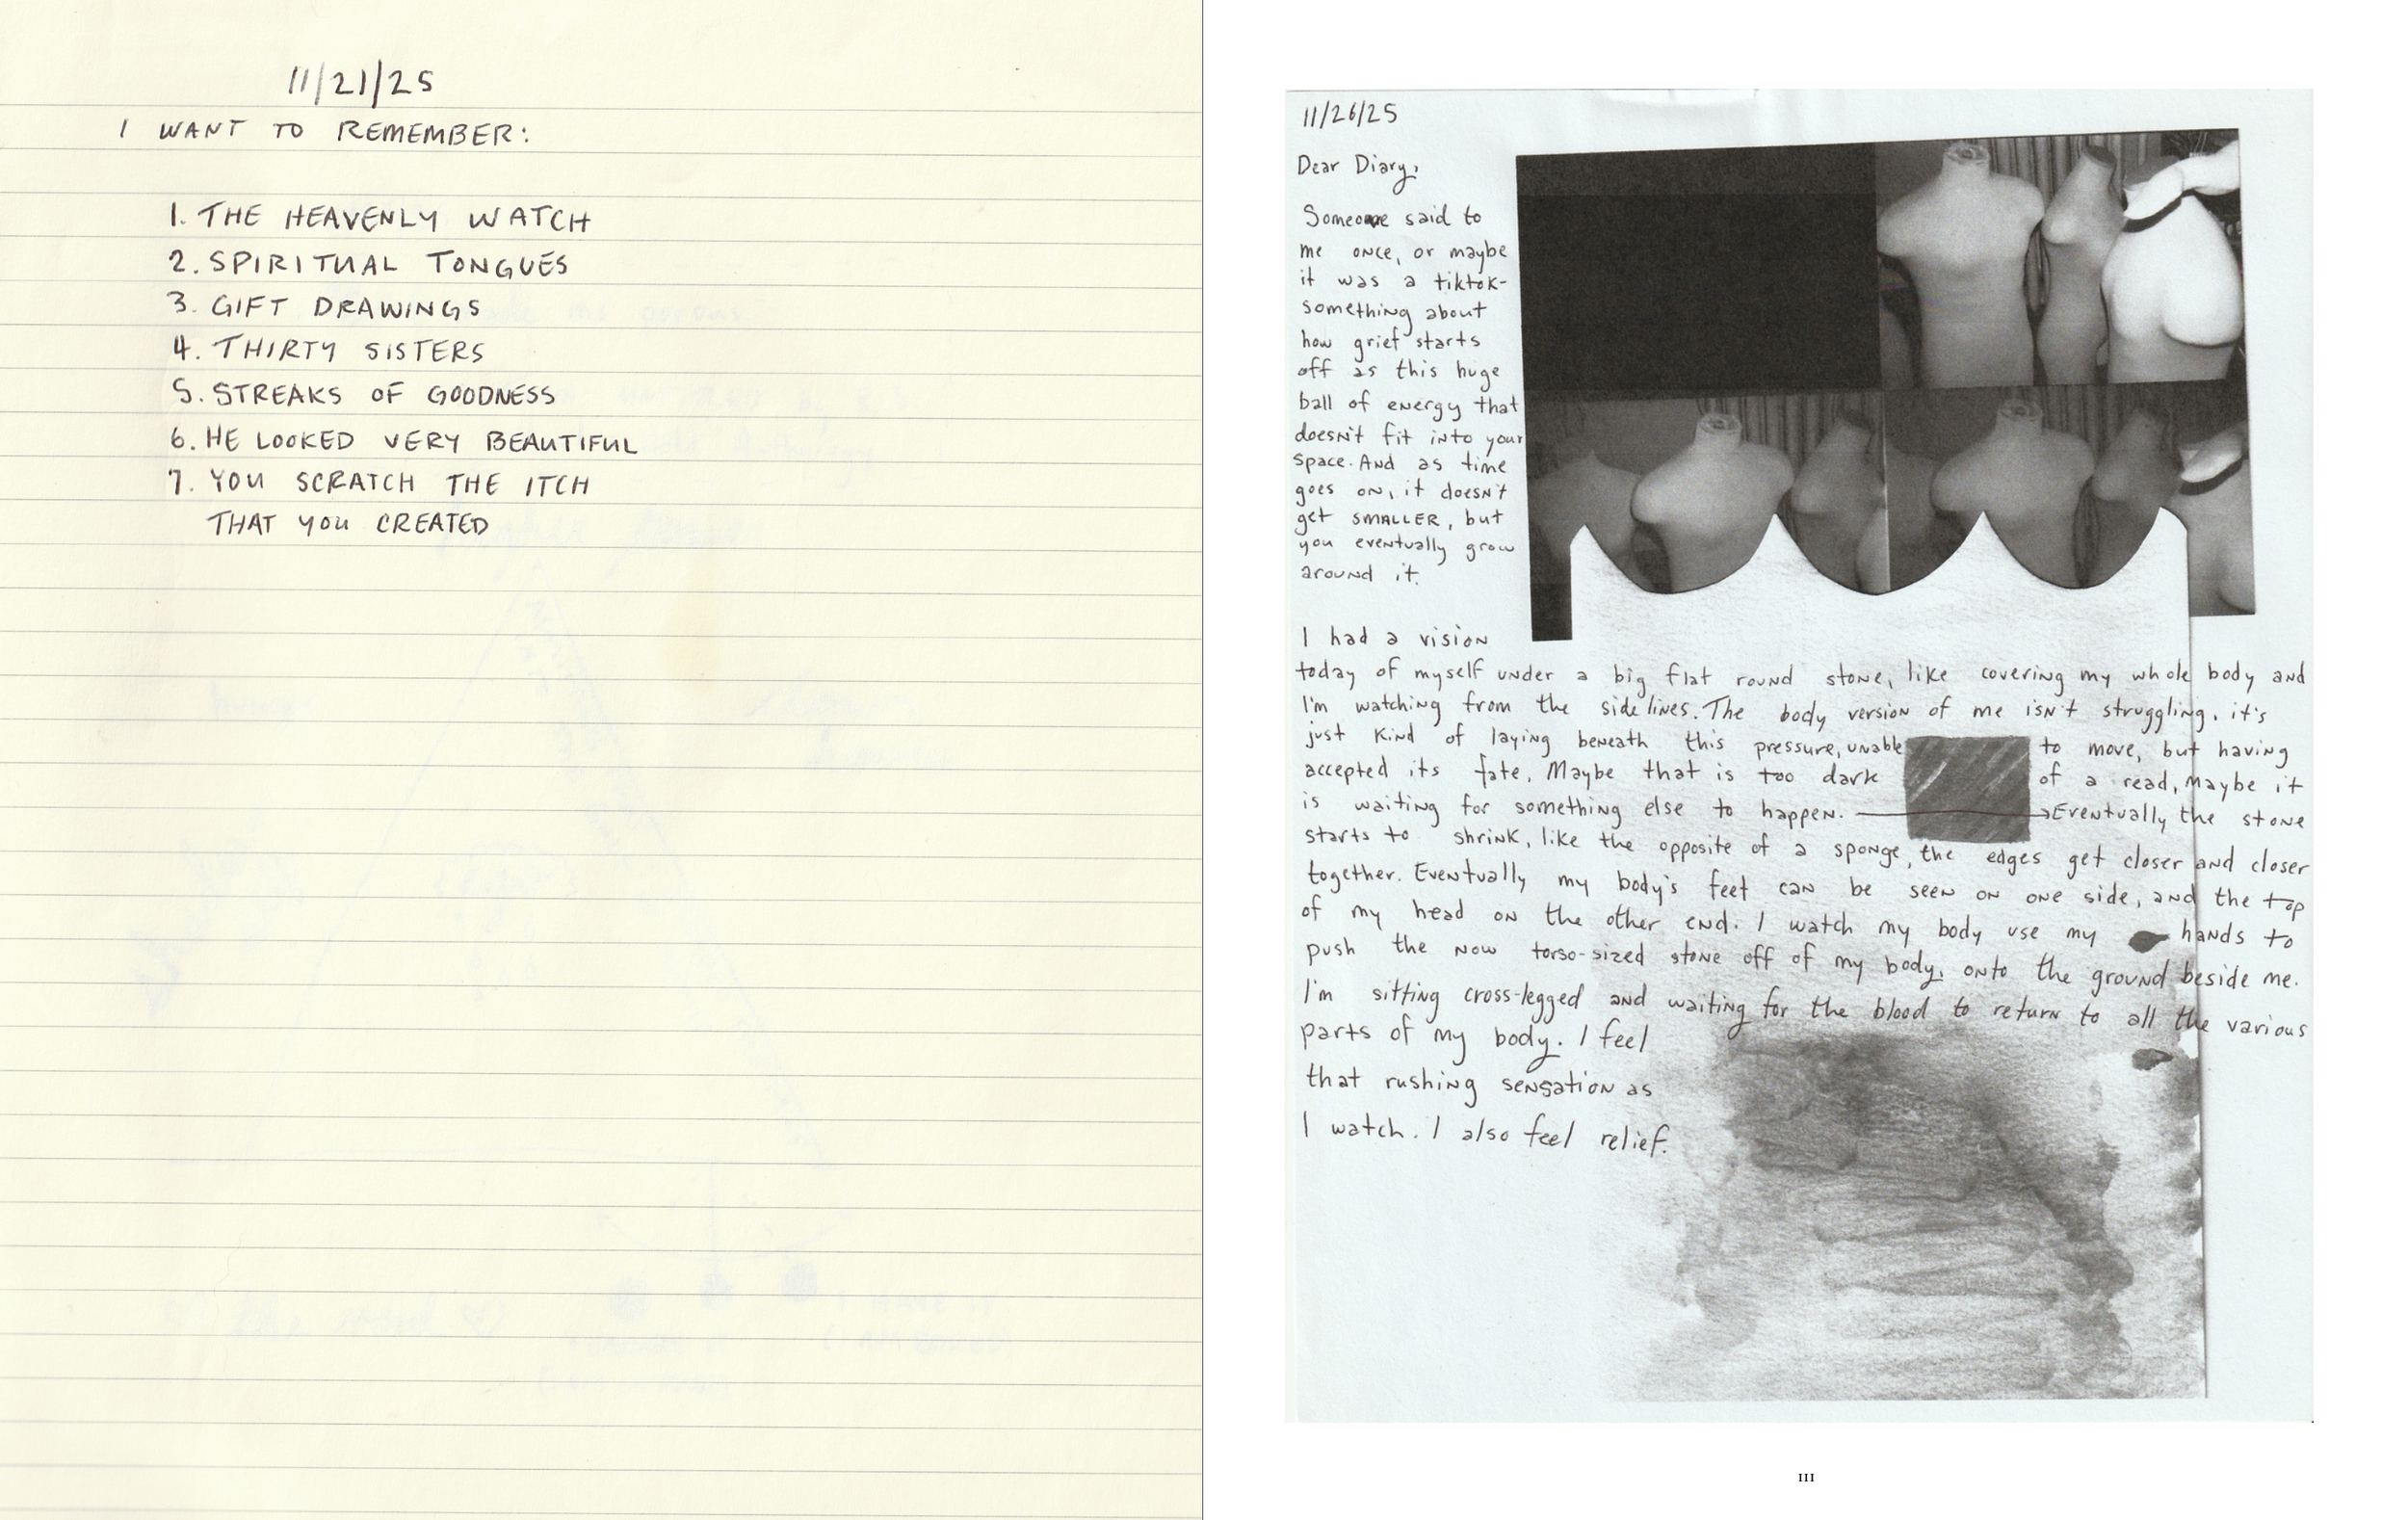 11/21/25
I WANT TO REMEMBER:
1. THE HEAVENLY WATCH
2. SPIRITUAL TONGUES
3. GIFT DRAWINGS
4. THIRTY SISTERS
5. STREAKS OF GOODNESS
6. HE LOOKED VERY BEAUTIFUL
7. YOU SCRATCH THE ITCH
THAT YOU CREATED
11/26/25
Dear Diary,
Someone said to
me once, or maybe
it was a tiktok-
something about
how grief starts
off as this huge
ball of energy that
doesn't fit into your
space. And as time
goes on, it doesn't
get SMALLER, but
you eventually grow
around it.
I had a vision
today of myself under a big flat round stone, like covering my whole body and
I'm watching from the sidelines. The body version of me isn't struggling, it's
just kind of laying beneath this pressure, unable to move, but having
accepted its fate. Maybe that is too dark of a read, maybe it
is waiting for something else to happen. → Eventually the stone
starts to shrink, like the opposite of a sponge, the edges get closer and closer
together. Eventually my body's feet can be seen on one side, and the top
of my head on the other end. I watch my body use my hands to
push the now torso-sized stone off of my body, onto the ground beside me.
I'm sitting cross-legged and waiting for the blood to return to all the various
parts of my body. I feel
that rushing sensation as
I watch. I also feel relief.
III